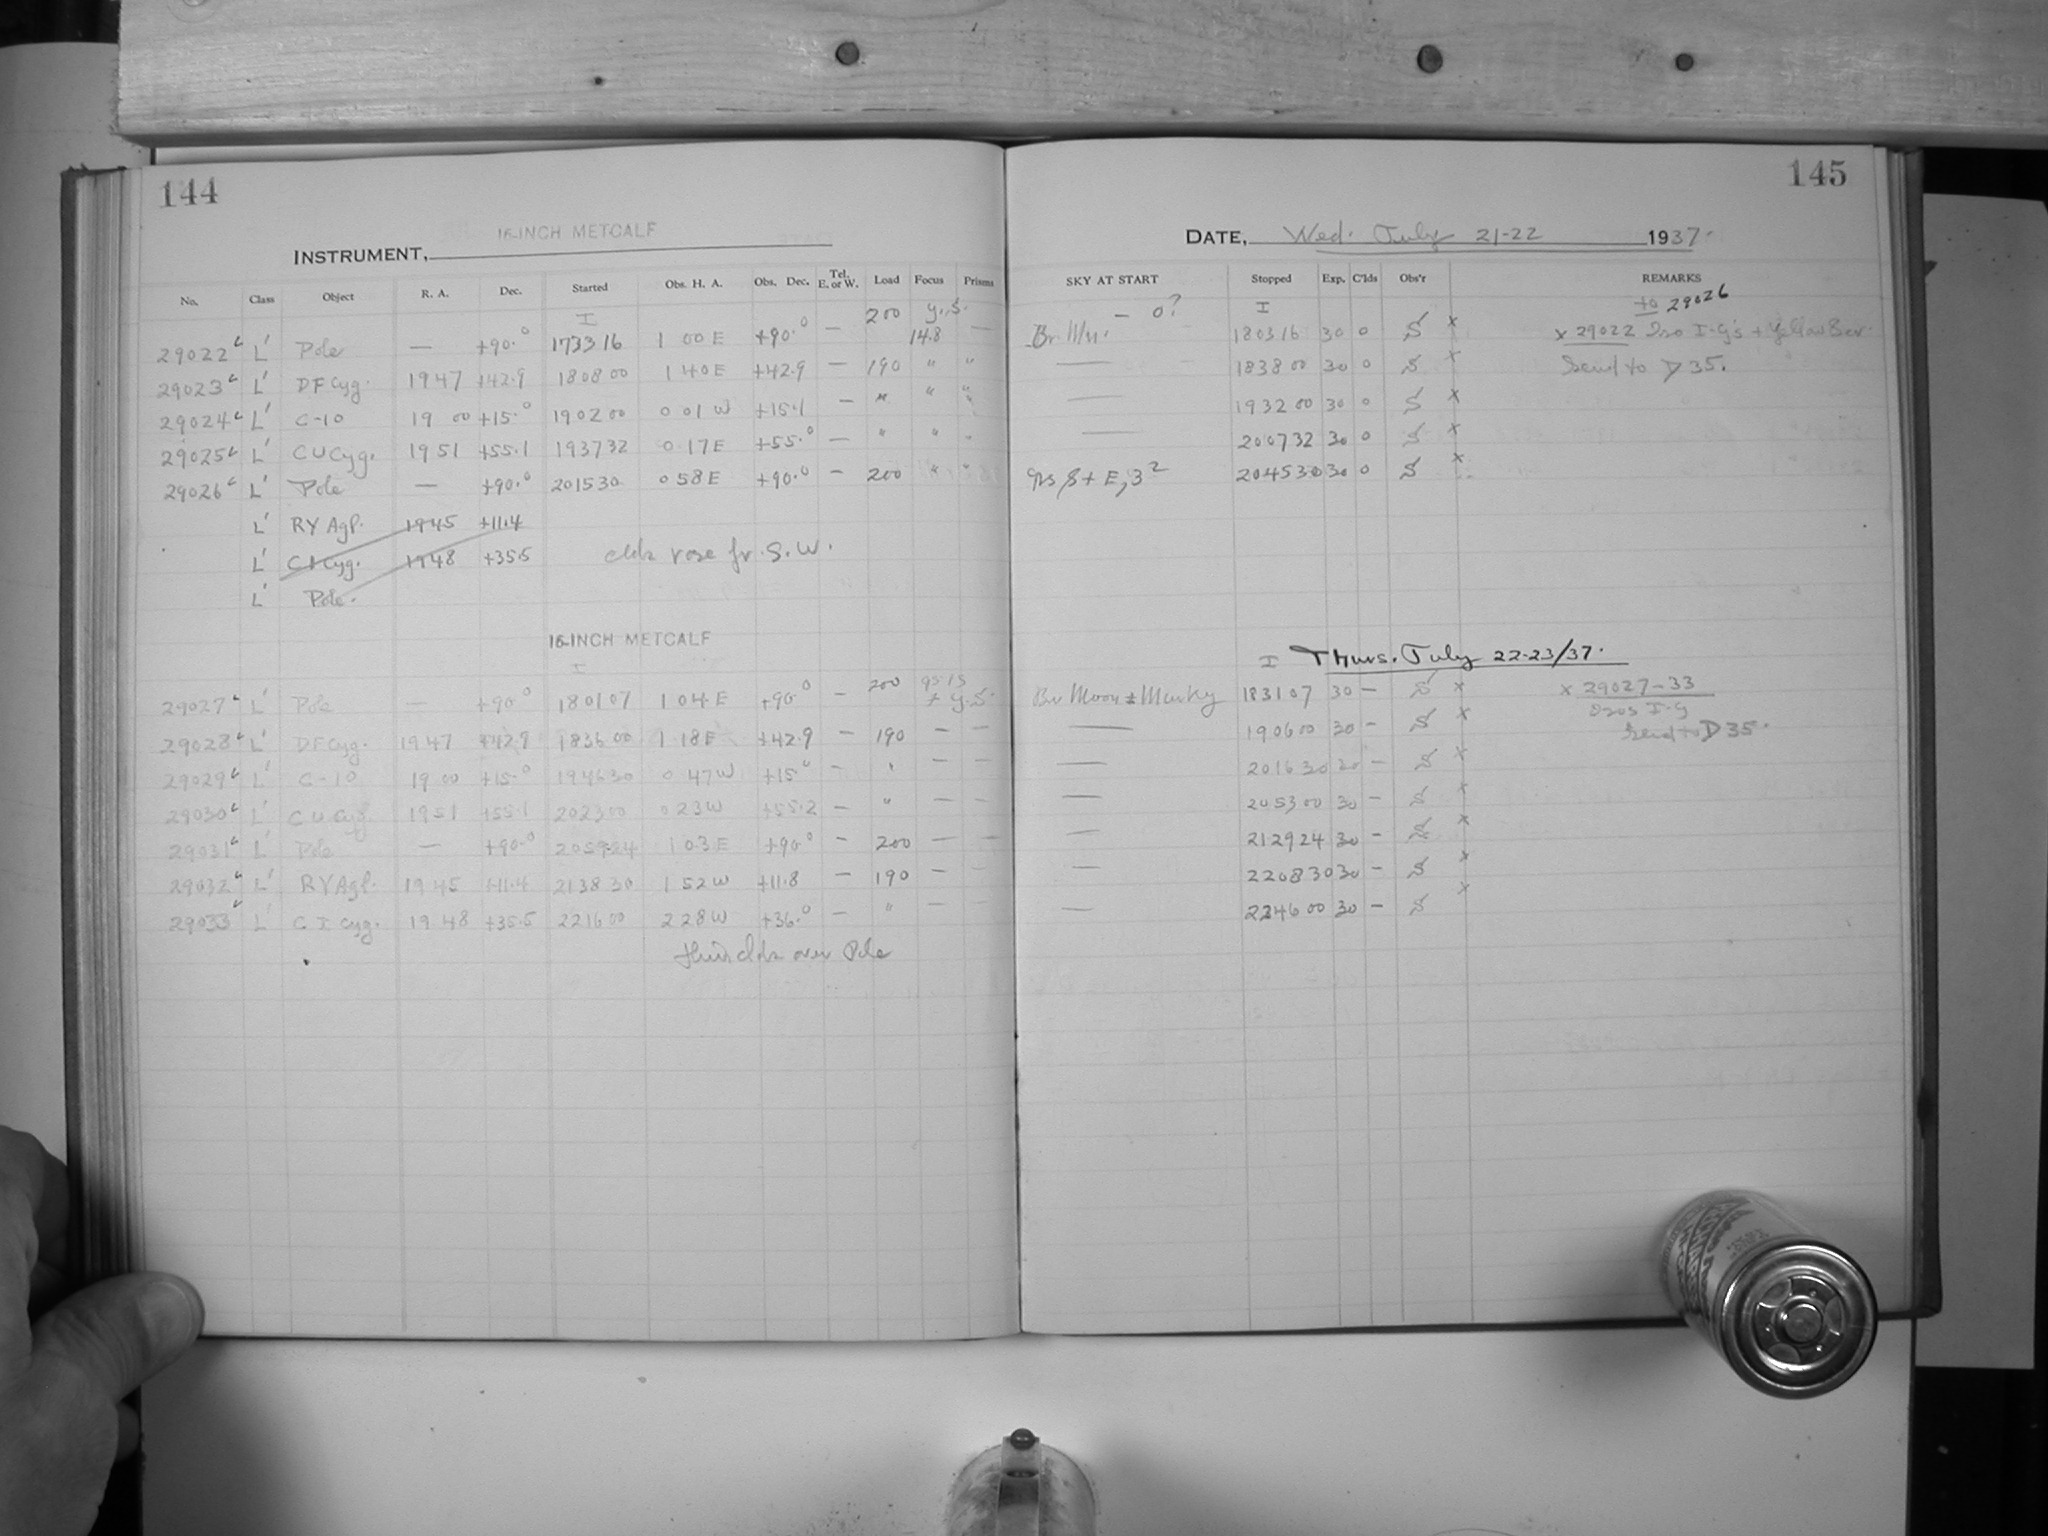 144
16-INCH METCALF
INSTRUMENT,
No. Class Object R. A. Dec. Started Obs. H. A. Obs. Dec. Tel. E. or W. Load Focus Prisms
I 200 y.S.
29022 L' Pole — +90.° 173316 1 00 E +90.° — 14.8 —
29023 L' DF Cyg. 1947 +42.9 180800 1 40 E +42.9 — 190 " "
29024 L' C-10 19 00 +15.° 190200 0 01 W +15.1 — " " "
29025 L' CU Cyg. 1951 +55.1 193732 0 17 E +55.° — " " "
29026 L' Pole — +90.° 201530 0 58 E +90.° — 200 " "
L' RY Aql. 1945 +11.4
L' CI Cyg. 1948 +35.5 clds rose fr. S.W.
L' Pole.
16-INCH METCALF
I
29027 L' Pole — +90.° 180107 1 04 E +90.° — 200 y.S.
29028 L' DF Cyg. 1947 +42.9 183600 1 18 E +42.9 — 190 — —
29029 L' C-10 19 00 +15.° 194630 0 47 W +15.° — " — —
29030 L' CU Cyg. 1951 +55.1 202300 0 23 W +55.2 — " — —
29031 L' Pole — +90.° 205924 1 03 E +90.° — 200 — —
29032 L' RY Aql. 1945 +11.4 213830 1 52 W +11.8 — 190 — —
29033 L' CI Cyg. 1948 +35.5 221600 2 28 W +36.° — " — —
clds over Pole
145
DATE, Wed. July 21-22 1937.
SKY AT START Stopped Exp. C'lds Obs'r REMARKS
— 0? I to 29026
Br. 180316 30 0 S x x 29022 I-G's + Yellow
— 183800 30 0 S x Send to D 35.
— 193200 30 0 S x
— 200732 30 0 S x
S + E, 3² 204530 30 0 S x
I Thurs. July 22-23/37.
Br Moon & Murky 183107 30 — S x x 29027-33
— 190600 30 — S x I-G
Send to D 35.
— 201630 30 — S x
— 205300 30 — S x
— 212924 30 — S x
— 220830 30 — S x
— 224600 30 — S x